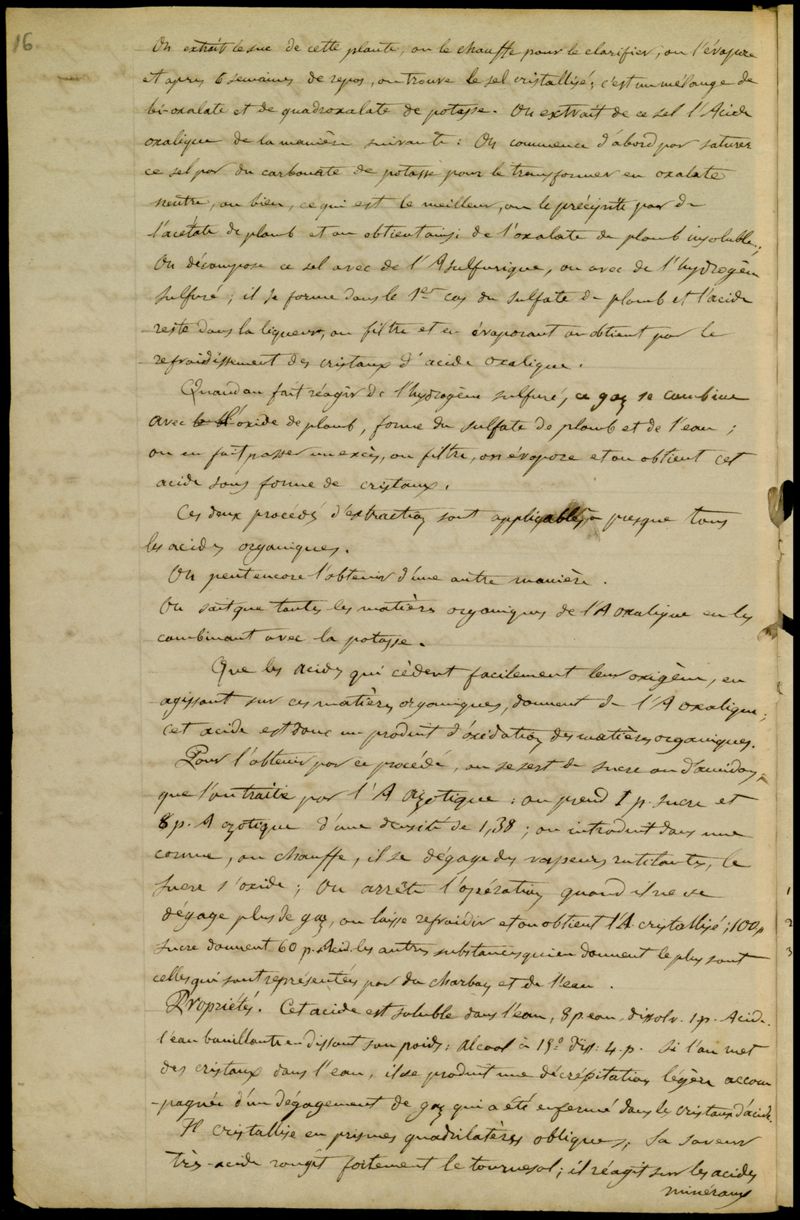 16
On extrait le suc de cette plante, on le chauffe pour le clarifier, on l'évapore
et apres 6 semaines de repos, on trouve le sel cristallisé; c'est un mélange de
bi-oxalate et de quadroxalate de potasse. On extrait de ce sel l'Acide
oxalique de la manière suivante: On commence d'abord par saturer
ce sel par du carbonate de potasse pour le transformer en oxalate
neutre, ou bien, ce qui est le meilleur, on le précipite par de
l'acétate de plomb et on obtient ainsi de l'oxalate de plomb insoluble;
On décompose ce sel avec de l'A sulfurique, ou avec de l'hydrogène
sulfuré; il se forme dans le 1er cas du sulfate de plomb et l'acide
reste dans la liqueur, on filtre et en évaporant on obtient par le
refroidissement des cristaux d'acide oxalique.
Quand on fait réagir de l'hydrogène sulfuré, ce gaz se combine
avec l'oxide de plomb, forme du sulfate de plomb et de l'eau;
on en fait passer un excès, on filtre, on évapore et on obtient cet
acide sous forme de cristaux.
Ces deux procedés d'extraction sont applicables à presque tous
les acides organiques.
On peut encore l'obtenir d'une autre manière.
On sait que toutes les matières organiques de l'A oxalique en les
combinant avec la potasse.
Que les acides qui cèdent facilement leur oxigène, en
agissant sur ces matières organiques, donnent de l'A oxalique;
cet acide est donc un produit d'oxidation des matières organiques.
Pour l'obtenir par ce procédé, on se sert de sucre ou d'amidon,
que l'on traite par l'A azotique: on prend 1 p. sucre et
8 p. A azotique d'une densité de 1,38; on introduit dans une
cornue, on chauffe, il se dégage des vapeurs rutilantes, le
sucre s'oxide; On arrête l'opération quand il ne se
dégage plus de gaz, on laisse refroidir et on obtient l'A cristallisé; 100 p
sucre donnent 60 p. Acid. les autres substances qui en donnent le plus sont
celles qui sont représentées par du charbon et de l'eau.
Propriétés. Cet acide est soluble dans l'eau, 8 p. eau dissolv. 1 p. Acide.
l'eau bouillante en dissout son poids; Alcool à 15° diss: 4 p. Si l'on met
des cristaux dans l'eau, il se produit une décrépitation légère accom
-pagnée d'un dégagement de gaz qui a été enfermé dans les cristaux d'acide.
Il cristallise en prismes quadrilatères obliques; Sa saveur
très-acide rougit fortement le tournesol; il réagit sur les acides
minéraux